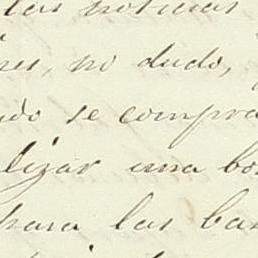 las noticias
no dudo,
se compra
lizar una bo
para las ban